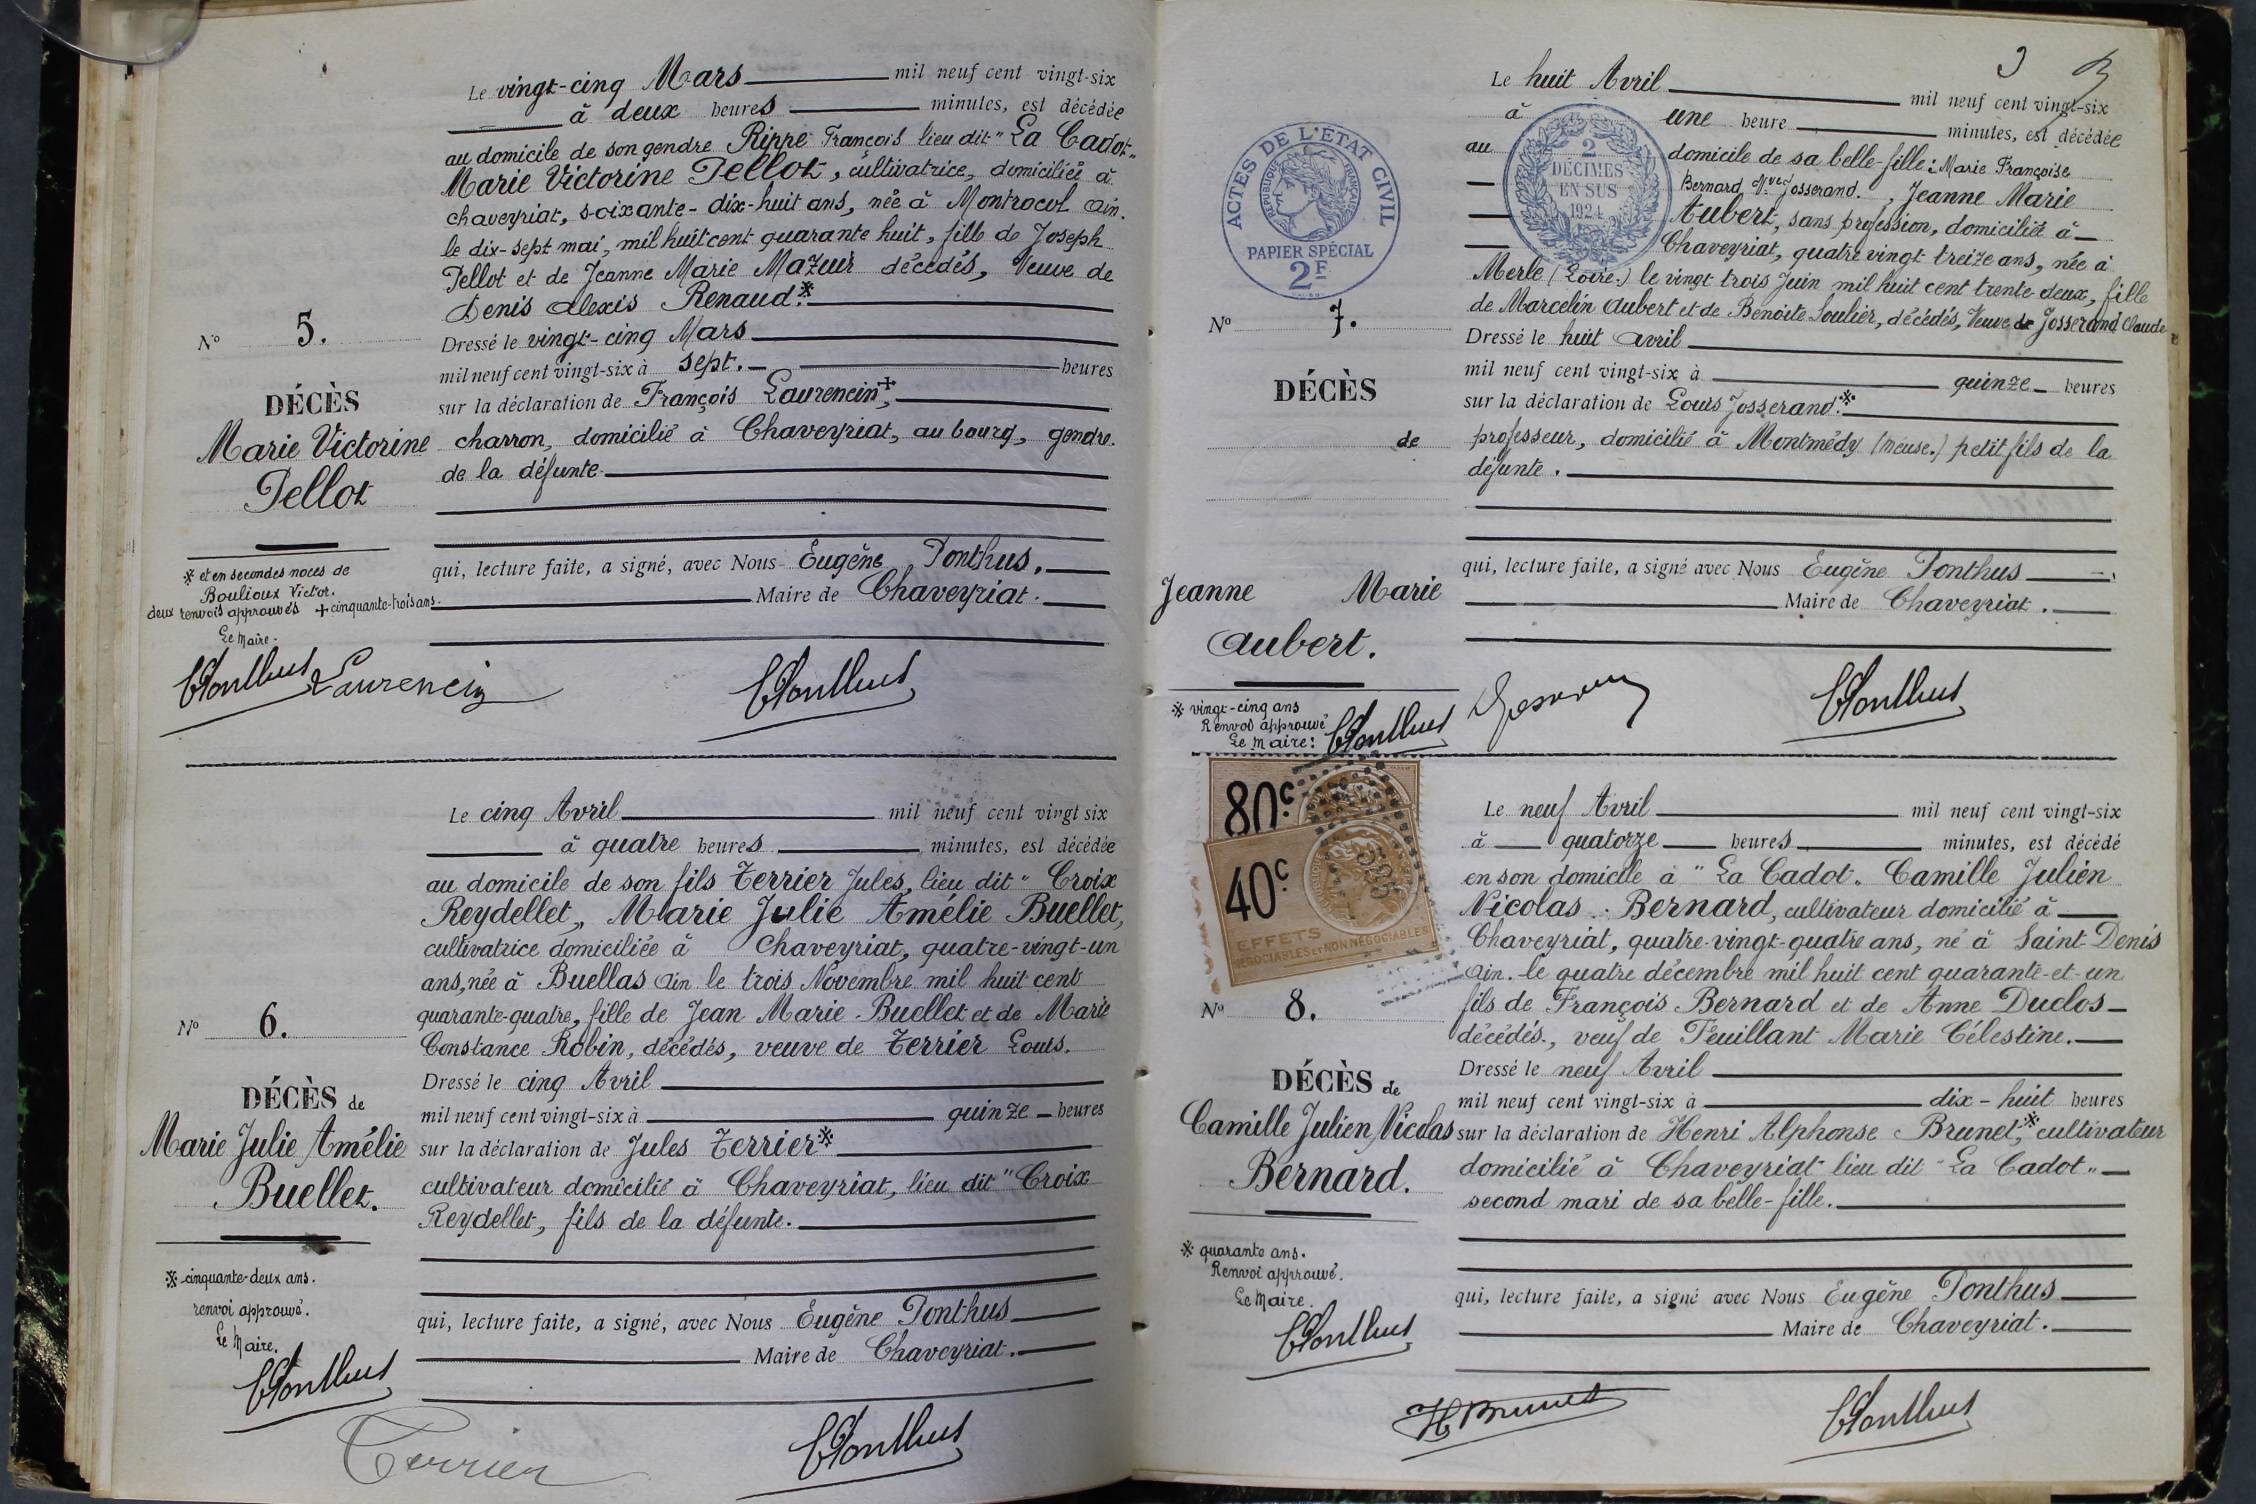 Le vingt-cinq Mars mil neuf cent vingt-six
à deux heures minutes, est décédée
au domicile de son gendre Rippe François lieu dit "La Cadot"
Marie Victorine Pellot, cultivatrice, domiciliée à
chaveyriat, soixante-dix-huit ans, née à Montracol Ain.
le dix-sept mai, mil huit cent quarante huit, fille de Joseph
Pellot et de Jeanne Marie Mazuir décédés, Veuve de
Denis Alexis Renaud.※
No 5.
Dressé le vingt-cinq Mars
mil neuf cent vingt-six à sept. heures
DÉCÈS
Marie Victorine
Pellot
sur la déclaration de François Laurencin,+
charron, domicilié à Chaveyriat, au bourg, gendre.
de la défunte.
qui, lecture faite, a signé, avec Nous Eugène Ponthus.
Maire de Chaveyriat.
※ et en secondes noces de
Boulioux Victor.
deux renvois approuvés + cinquante-trois ans.
Le Maire.
EPonthus Laurencin EPonthus
Le cinq Avril mil neuf cent vingt six
à quatre heures minutes, est décédée
au domicile de son fils Terrier Jules, lieu dit "Croix
Reydellet", Marie Julie Amélie Buellet,
cultivatrice domiciliée à Chaveyriat, quatre-vingt-un
ans, née à Buellas Ain le trois Novembre mil huit cent
quarante-quatre, fille de Jean Marie Buellet et de Marie
Constance Robin, décédés, veuve de Terrier Louis.
No 6.
Dressé le cinq Avril
mil neuf cent vingt-six à quinze heures
DÉCÈS de
Marie Julie Amélie
Buellet.
sur la déclaration de Jules Terrier※
cultivateur domicilié à Chaveyriat, lieu dit "Croix
Reydellet, fils de la défunte.
※ cinquante-deux ans.
renvoi approuvé.
Le Maire.
qui, lecture faite, a signé, avec Nous Eugène Ponthus
Maire de Chaveyriat.
EPonthus
Terrier EPonthus
3
Le huit Avril mil neuf cent vingt-six
à une heure minutes, est décédée
au domicile de sa belle-fille: Marie Françoise
Bernard Vve Josserand., Jeanne Marie
Aubert, sans profession, domiciliée à
Chaveyriat, quatre vingt treize ans, née à
Merle (Loire.) le vingt trois Juin mil huit cent trente deux, fille
de Marcelin Aubert et de Benoite Soulier, décédés, Veuve de Josserand Claude
ACTES DE L'ETAT CIVIL
REPUBLIQUE FRANÇAISE
PAPIER SPÉCIAL
2F
2
DÉCIMES
EN SUS
1924
No 7.
Dressé le huit avril
mil neuf cent vingt-six à quinze heures
DÉCÈS
de
Jeanne Marie
Aubert.
sur la déclaration de Louis Josserand.※
professeur, domicilié à Montmédy (Meuse.) petit fils de la
défunte.
qui, lecture faite, a signé avec Nous Eugène Ponthus
Maire de Chaveyriat.
※ vingt-cinq ans
Renvoi approuvé
Le Maire: EPonthus
EPonthus
80c
40c
EFFETS
NÉGOCIABLES ET NON NÉGOCIABLES
Le neuf Avril mil neuf cent vingt-six
à quatorze heures minutes, est décédé
en son domicile à "La Cadot. Camille Julien
Nicolas Bernard, cultivateur domicilié à
Chaveyriat, quatre-vingt-quatre ans, né à Saint-Denis
Ain. le quatre décembre mil huit cent quarante-et-un
fils de François Bernard et de Anne Duclos
décédés., veuf de Feuillant Marie Célestine.
No 8.
Dressé le neuf Avril
mil neuf cent vingt-six à dix-huit heures
DÉCÈS de
Camille Julien Nicolas
Bernard.
sur la déclaration de Henri Alphonse Brunet,※ cultivateur
domicilié à Chaveyriat lieu dit "La Cadot"
second mari de sa belle-fille.
※ quarante ans.
Renvoi approuvé.
Le Maire.
qui, lecture faite, a signé avec Nous Eugène Ponthus
Maire de Chaveyriat.
EPonthus
H Brunet EPonthus